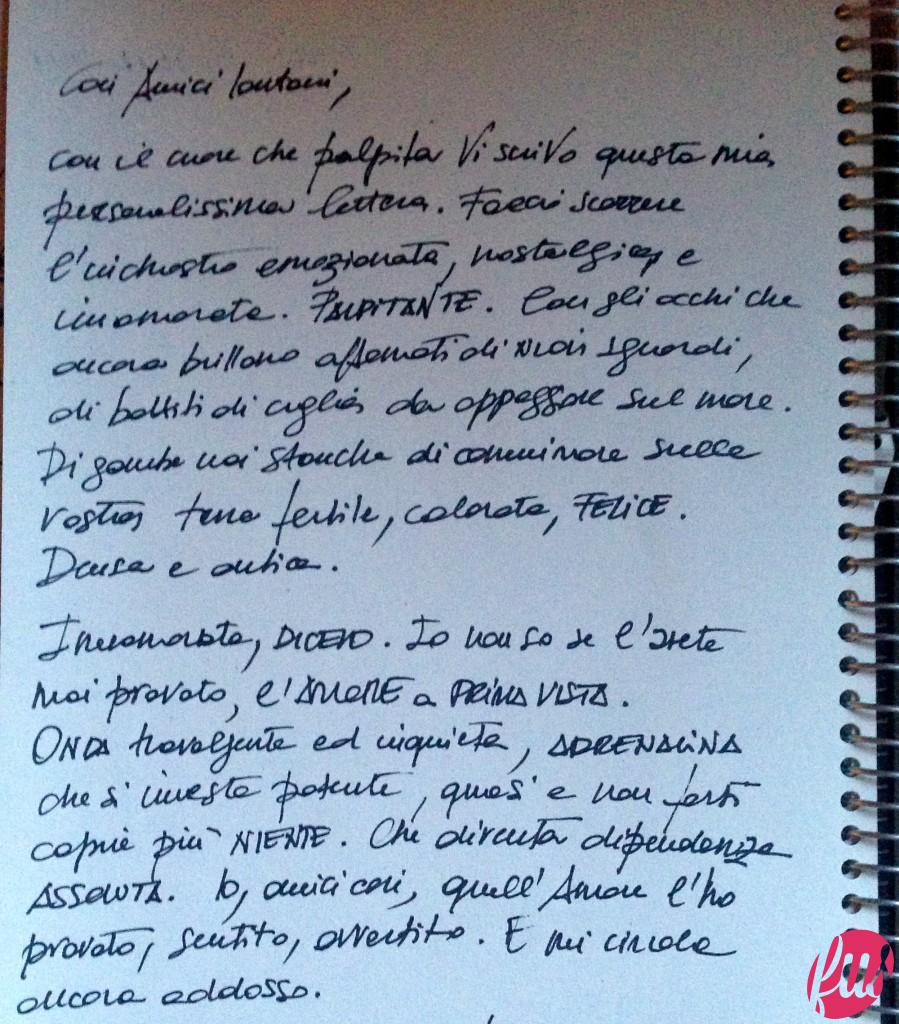 Cari Amici lontani,
con il cuore che palpita Vi scrivo questa mia
personalissima lettera. Faccio scorrere
l'inchiostro emozionata, nostalgica e
innamorata. PALPITANTE. Con gli occhi che
ancora brillano affamati di NUOVI sguardi,
di battiti di ciglia da appoggiare sul mare.
Di gambe mai stanche di camminare sulla
vostra terra fertile, colorata, FELICE.
Densa e antica.
Innamorata, DICEVO. Io non so se l'avete
mai provato, l'AMORE a PRIMA VISTA.
ONDA travolgente ed inquieta, ADRENALINA
che si investe potente, quasi a non farti
capire più NIENTE. Che diventa dipendenza
ASSOLUTA. Io, amici cari, quell'Amore l'ho
provato, sentito, avvertito. E mi circola
ancora addosso.
fu